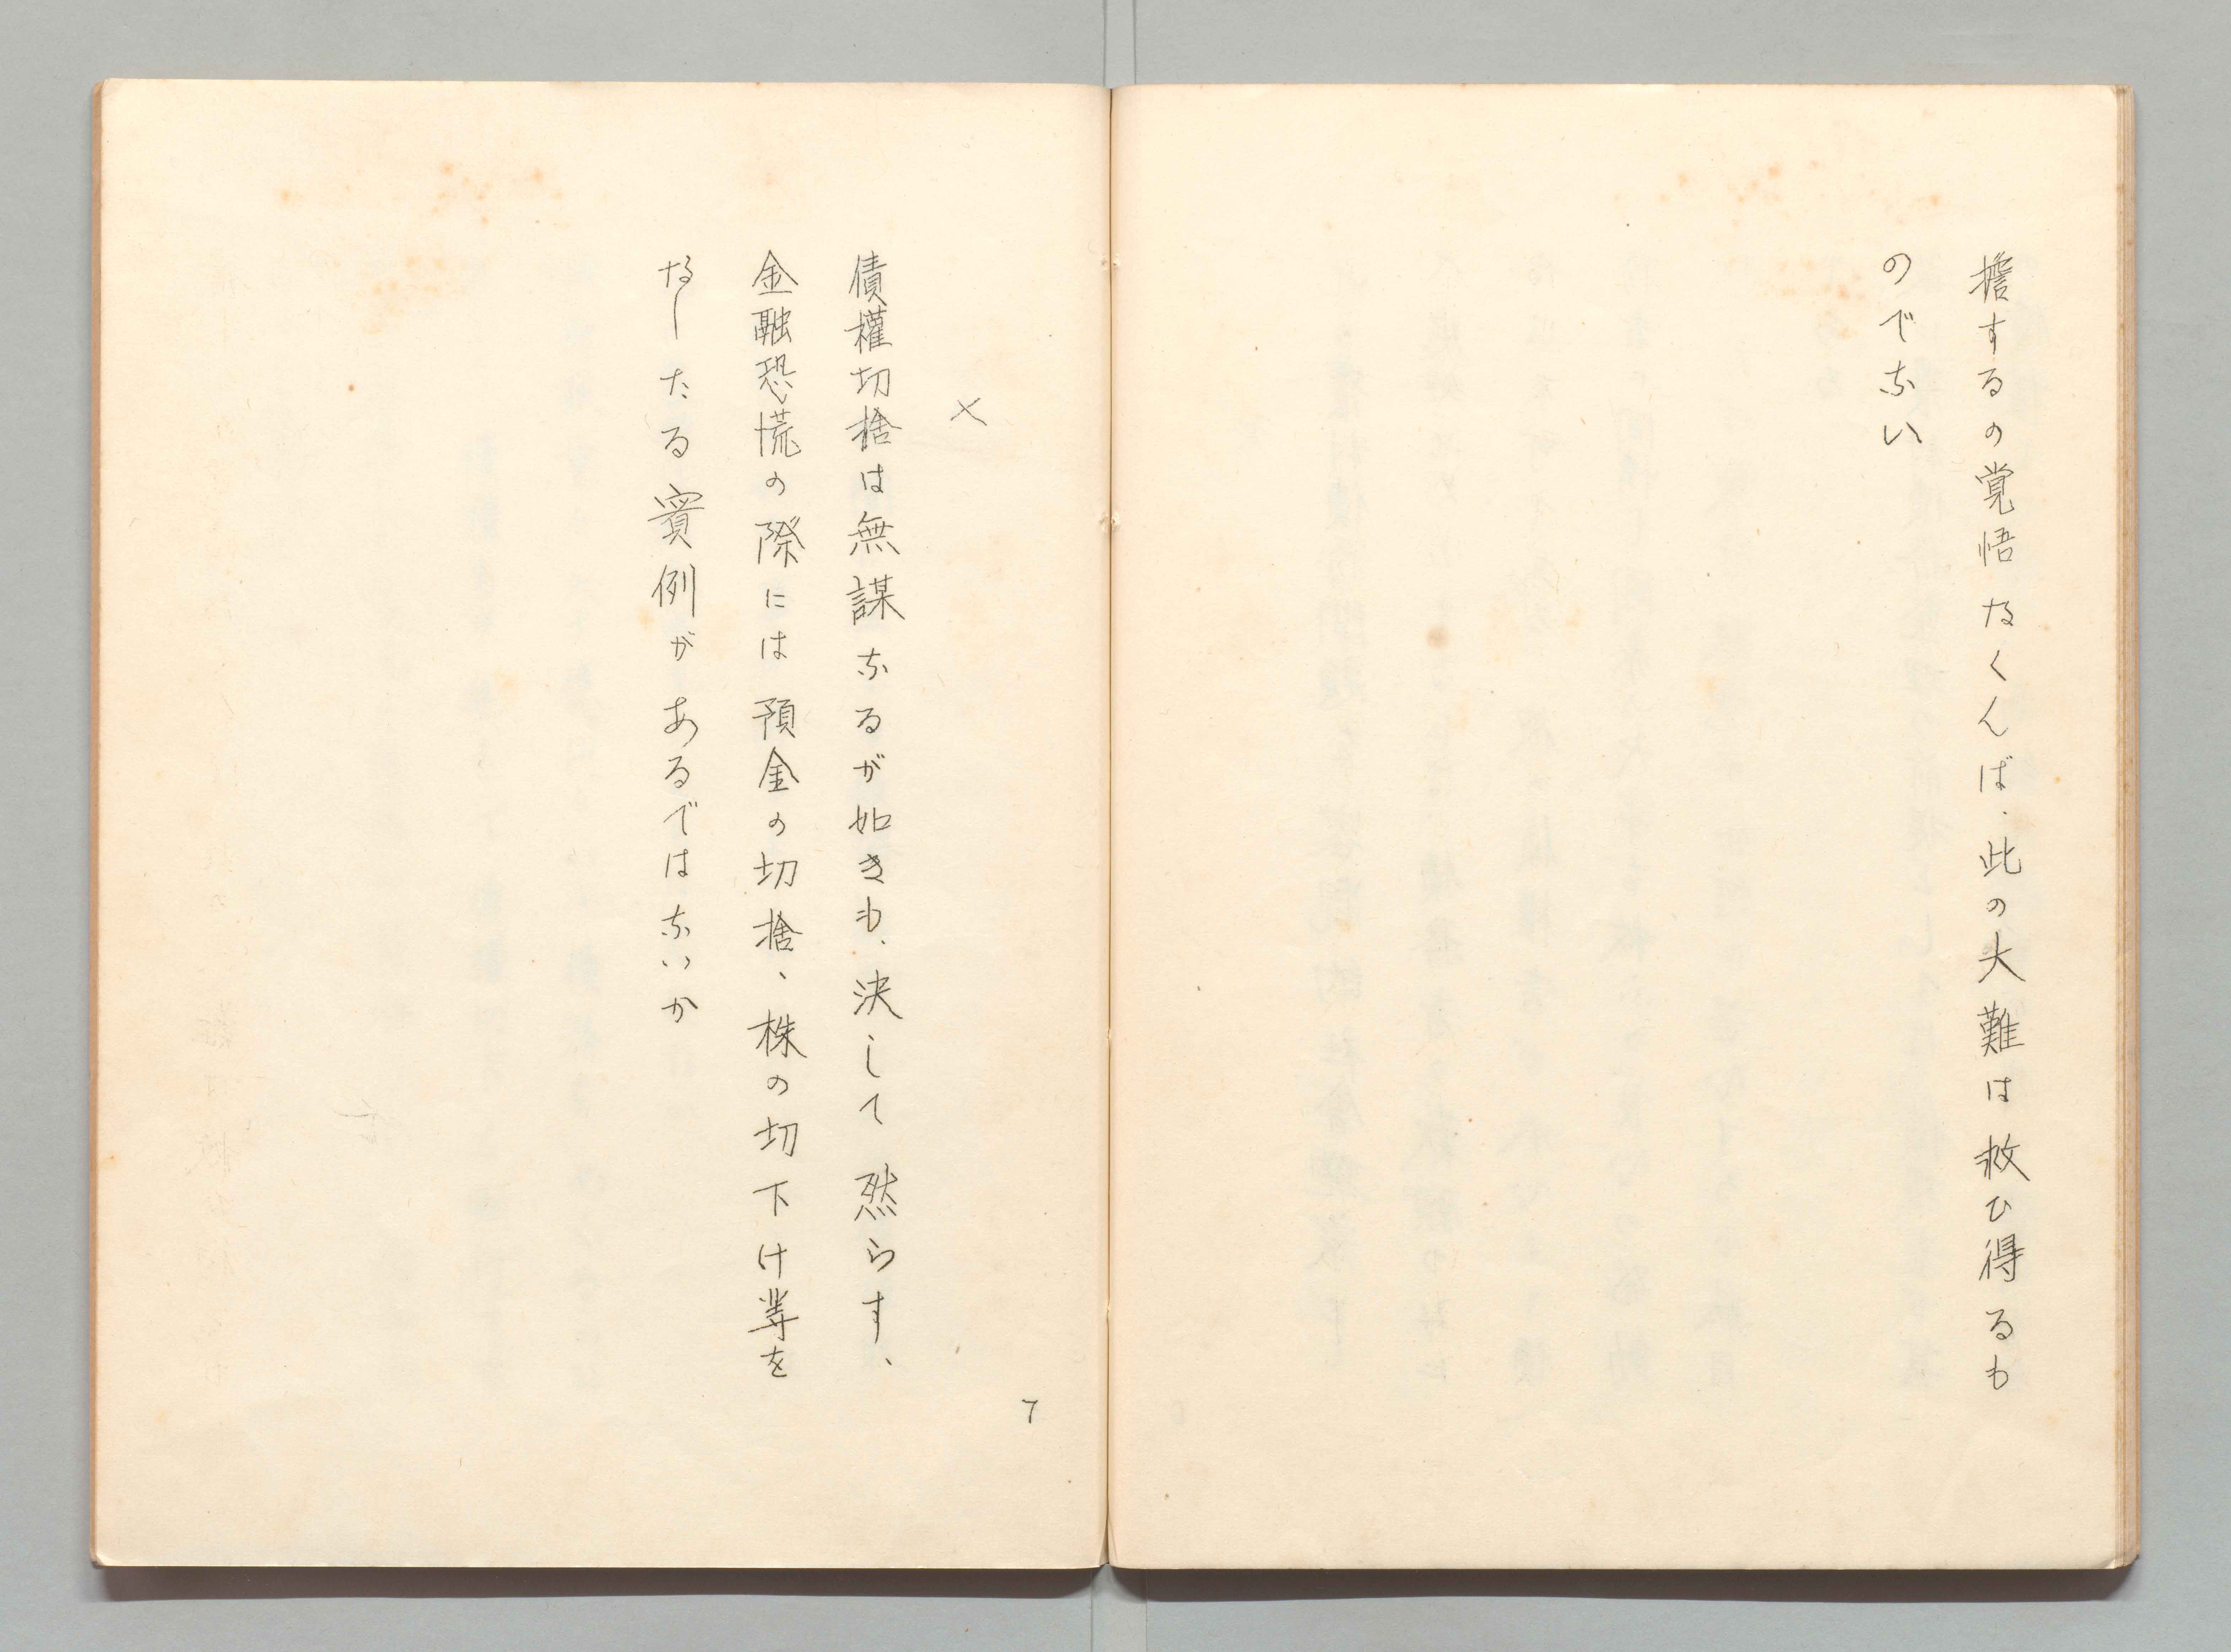 擔するの覚悟なくんば、此の大難は救ひ得るも
のでない
×
債權切捨は無謀なるが如きも、決して然らす、
金融恐慌の際には預金の切捨、株の切下け等を
なしたる實例があるではないか
7